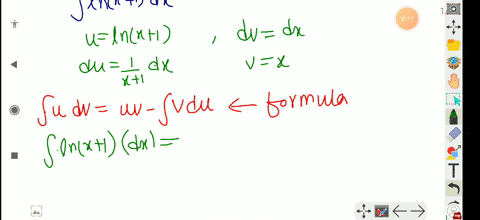 ∫ln(x+1) dx
u = ln(x+1) , dv = dx
du = 1/(x+1) dx v = x
∫u dv = uv - ∫v du ← formula
∫ln(x+1) (dx) =